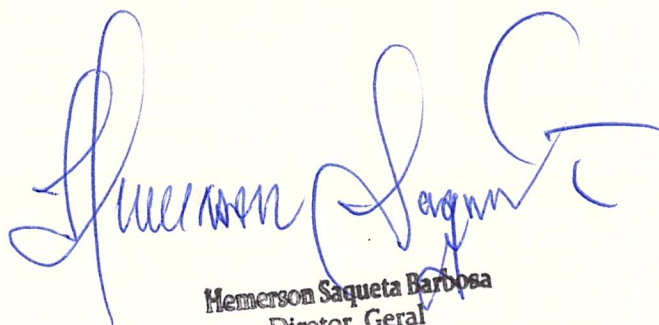 Hemerson Saqueta
Hemerson Saqueta Barbosa
Diretor Geral